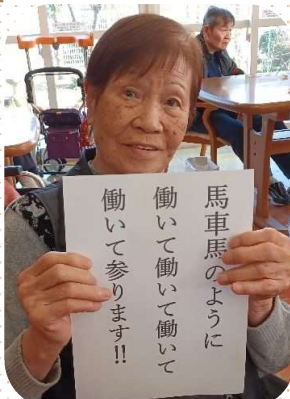 馬車馬のように
働いて働いて働いて
働いて参ります!!